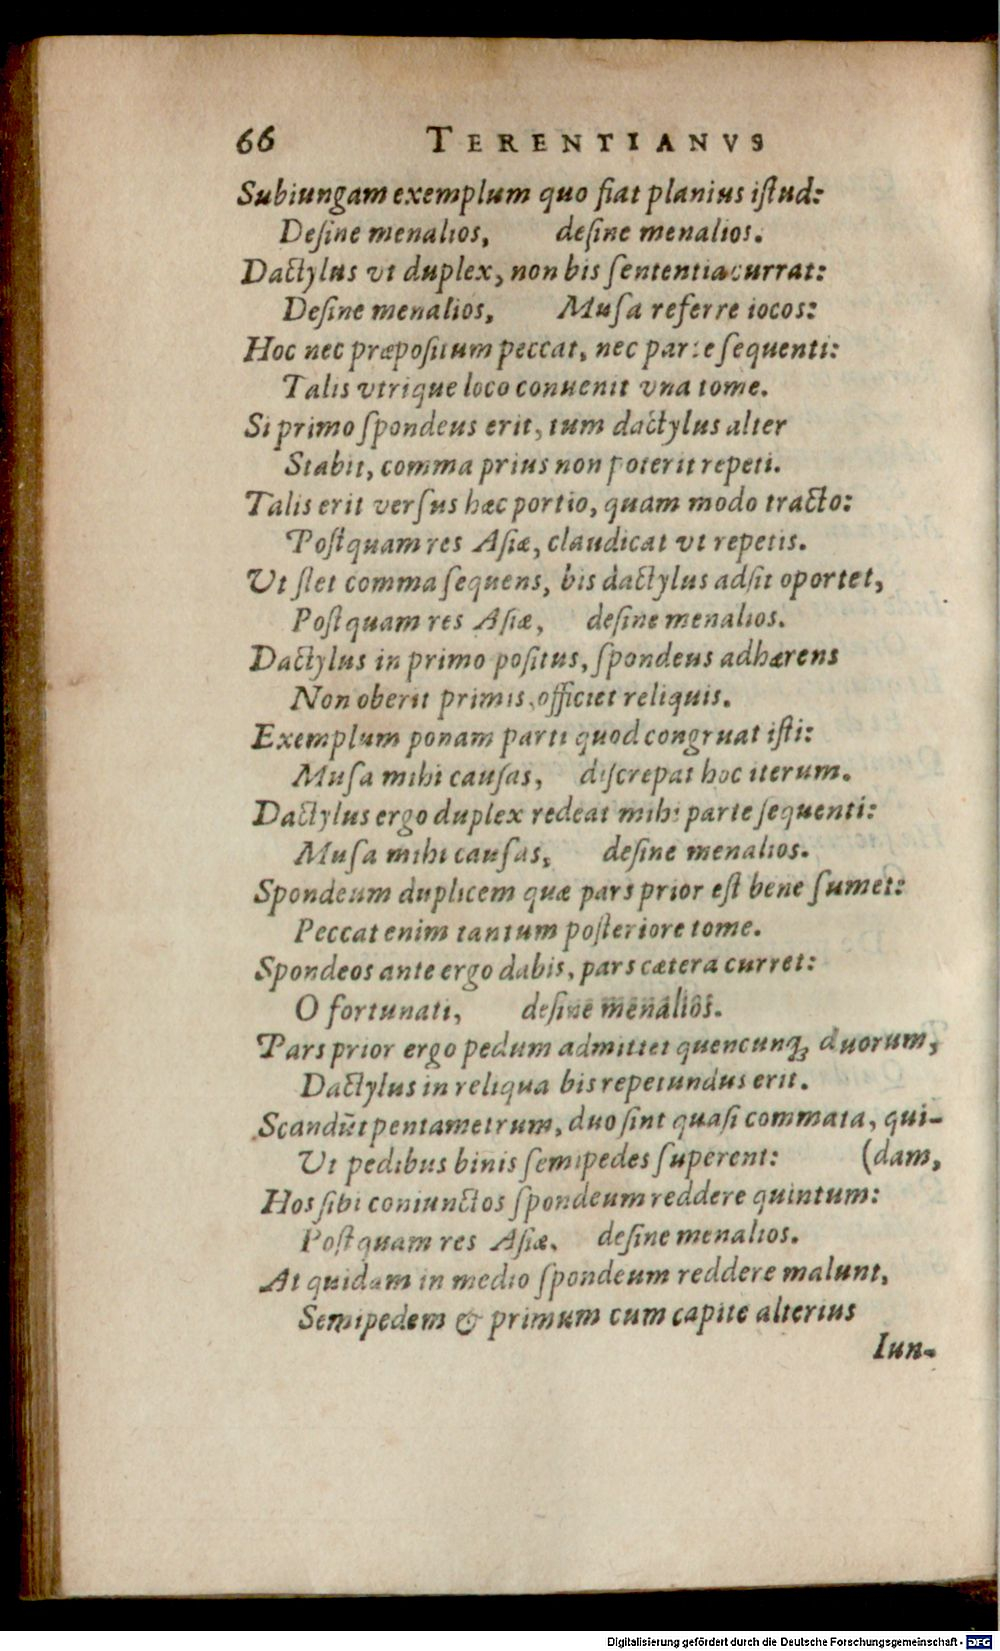 66 TERENTIANVS
Subiungam exemplum quo fiat planius iſtud:
Deſine menalios, deſine menalios.
Dactylus vt duplex, non bis ſententia currat:
Deſine menalios, Muſa referre iocos:
Hoc nec præpoſitum peccat, nec parte ſequenti:
Talis vtrique loco conuenit vna tome.
Si primo ſpondeus erit, tum dactylus alter
Stabit, comma prius non poterit repeti.
Talis erit verſus hæc portio, quam modo tracto:
Poſtquam res Aſiæ, claudicat vt repetis.
Ut ſtet comma ſequens, bis dactylus adſit oportet,
Poſtquam res Aſiæ, deſine menalios.
Dactylus in primo poſitus, ſpondeus adhærens
Non oberit primis, officiet reliquis.
Exemplum ponam parti quod congruat iſti:
Muſa mihi cauſas, diſcrepat hoc iterum.
Dactylus ergo duplex redeat mihi parte ſequenti:
Muſa mihi cauſas, deſine menalios.
Spondeum duplicem quæ pars prior eſt bene ſumet:
Peccat enim tantum poſteriore tome.
Spondeos ante ergo dabis, pars cætera curret:
O fortunati, deſine menalios.
Pars prior ergo pedum admittet quencunq; duorum,
Dactylus in reliqua bis repetundus erit.
Scandūt pentametrum, duo ſint quaſi commata, qui-
Ut pedibus binis ſemipedes ſuperent: (dam,
Hos ſibi coniunctos ſpondeum reddere quintum:
Poſtquam res Aſiæ, deſine menalios.
At quidam in medio ſpondeum reddere malunt,
Semipedem & primum cum capite alterius
Iun-
Digitalisierung gefördert durch die Deutsche Forschungsgemeinschaft - DFG